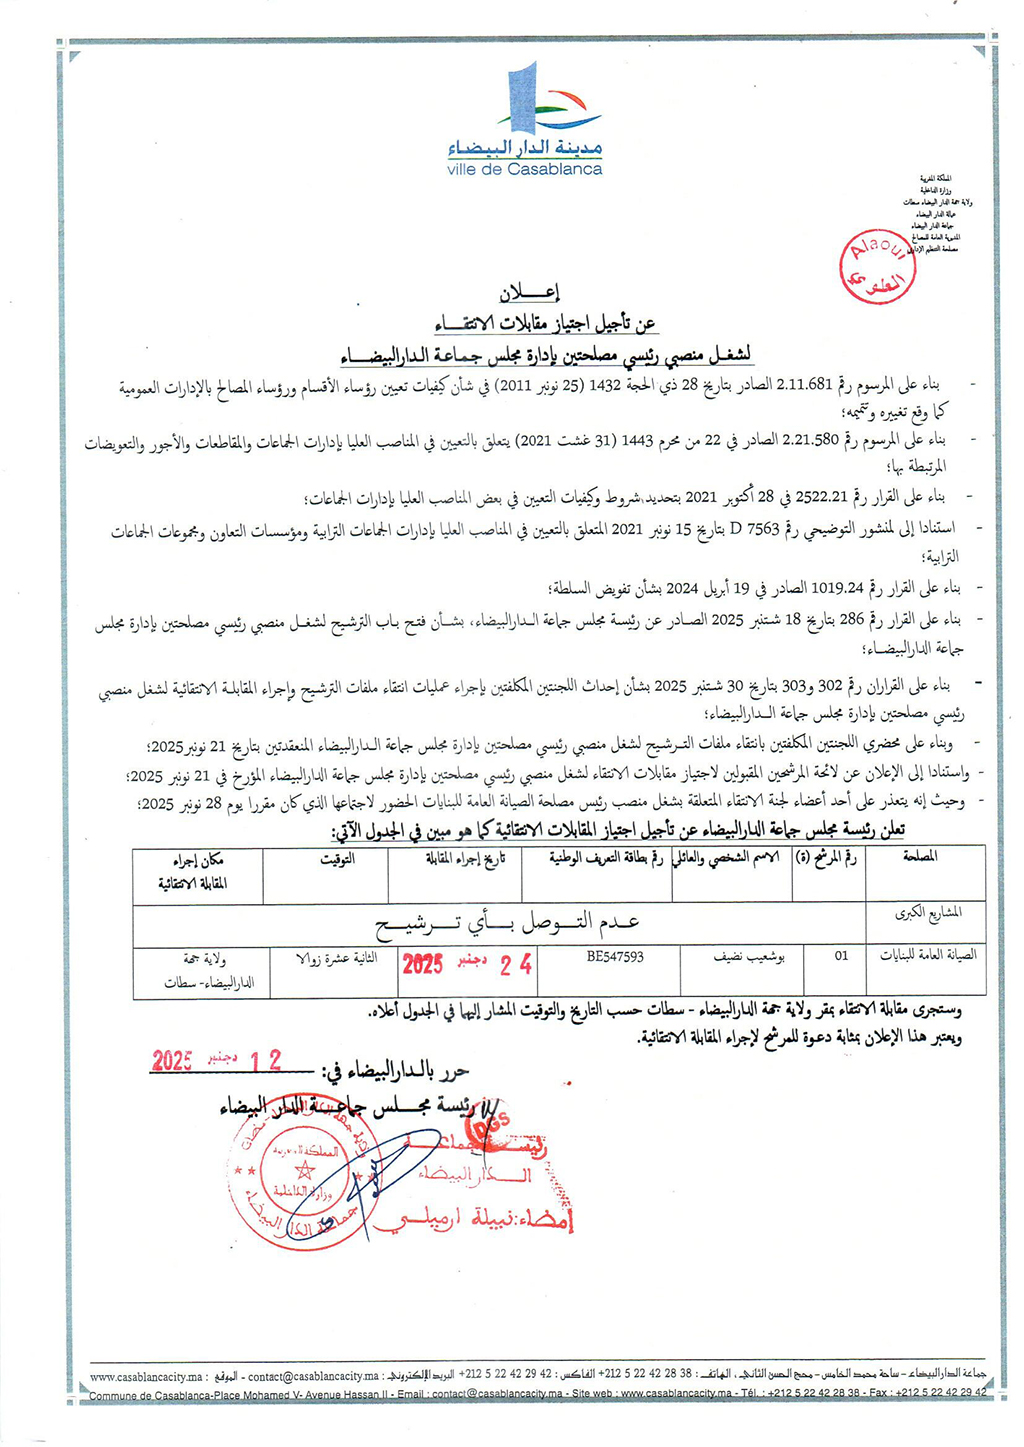 مدينة الدار البيضاء
ville de Casablanca
المملكة المغربية
وزارة الداخلية
ولاية جهة الدار البيضاء سطات
عمالة الدار البيضاء
جماعة الدار البيضاء
المديرية العامة للمصالح
مصلحة التنظيم الإداري
Alaoui
العلوي
إعـــلان
عن تأجيل اجتياز مقابلات الانتقـــاء
لشغـل منصبي رئيسي مصلحتين بإدارة مجلس جـماعـة الـدارالبيضـــاء
- بناء على المرسوم رقم 2.11.681 الصادر بتاريخ 28 ذي الحجة 1432 (25 نونبر 2011) في شأن كيفيات تعيين رؤساء الأقسام ورؤساء المصالح بالإدارات العمومية
كما وقع تغييره وتتميمه؛
- بناء على المرسوم رقم 2.21.580 الصادر في 22 من محرم 1443 (31 غشت 2021) يتعلق بالتعيين في المناصب العليا بإدارات الجماعات والمقاطعات والأجور والتعويضات
المرتبطة بها؛
- بناء على القرار رقم 2522.21 في 28 أكتوبر 2021 بتحديد شروط وكيفيات التعيين في بعض المناصب العليا بإدارات الجماعات؛
- استنادا إلى لمنشور التوضيحي رقم D 7563 بتاريخ 15 نونبر 2021 المتعلق بالتعيين في المناصب العليا بإدارات الجماعات الترابية ومؤسسات التعاون ومجموعات الجماعات
الترابية؛
- بناء على القرار رقم 1019.24 الصادر في 19 أبريل 2024 بشأن تفويض السلطة؛
- بناء على القرار رقم 286 بتاريخ 18 شتنبر 2025 الصادر عن رئيسة مجلس جماعة الـدارالبيضاء، بشـأن فتـح بـاب الترشيح لشغـل منصبي رئيسي مصلحتين بإدارة مجلس
جماعة الدارالبيضــاء؛
- بناء على القراران رقم 302 و303 بتاريخ 30 شـتنبر 2025 بشأن إحداث اللجنتين المكلفتين بإجراء عمليات انتقاء ملفات الترشيح وإجراء المقابلـة الانتقائية لشغل منصبي
رئيسي مصلحتين بإدارة مجلس جماعة الـــدارالبيضاء؛
- وبناء على محضري اللجنتين المكلفتين بانتقاء ملفات التـرشيح لشغل منصبي رئيسي مصلحتين بإدارة مجلس جماعة الـدارالبيضاء المنعقدتين بتاريخ 21 نونبر2025؛
- واستنادا إلى الإعلان عن لائحة المرشحين المقبولين لاجتياز مقابلات الانتقاء لشغل منصبي رئيسي مصلحتين بإدارة مجلس جماعة الدارالبيضاء المؤرخ في 21 نونبر 2025؛
- وحيث إنه يتعذر على أحد أعضاء لجنة الانتقاء المتعلقة بشغل منصب رئيس مصلحة الصيانة العامة للبنايات الحضور لاجتماعها الذي كان مقررا يوم 28 نونبر 2025؛
تعلن رئيسة مجلس جماعة الدارالبيضاء عن تأجيل اجتياز المقابلات الانتقائية كما هو مبين في الجدول الآتي:
المصلحة رقم المرشح (ة) الاسم الشخصي والعائلي رقم بطاقة التعريف الوطنية تاريخ إجراء المقابلة التوقيت مكان إجراء
المقابلة الانتقائية
المشاريع الكبرى عـدم التـوصل بـــأي تــرشيـــح
الصيانة العامة للبنايات 01 بوشعيب نضيف BE547593 24 دجنبر 2025 الثانية عشرة زوالا ولاية جهة
الدارالبيضاء- سطات
وستجرى مقابلة الانتقاء بمقر ولاية جهة الدارالبيضاء – سطات حسب التاريخ والتوقيت المشار إليهما في الجدول أعلاه.
ويعتبر هذا الإعلان بمثابة دعوة للمرشح لإجراء المقابلة الانتقائية.
حرر بالـدارالبيضاء في: 12 دجنبر 2025
رئيسة مجـلس جماعـــة الدار البيضاء
DGS
رئيسة جماعة
الــدار البيضاء
إمضاء: نبيلة ارميلي
المملكة المغربية
وزارة الداخلية
جماعة الدار البيضاء
جماعة الدارالبيضاء – ساحة محمد الخامس – محج الحسن الثاني، الهاتف: 38 28 42 22 5 212+ الفاكس: 42 29 42 22 5 212+ البريد الإلكتروني: contact@casablancacity.ma - الموقع : www.casablancacity.ma
Commune de Casablanca-Place Mohamed V- Avenue Hassan II - Email : contact@casablancacity.ma - Site web : www.casablancacity.ma - Tél. : +212 5 22 42 28 38 - Fax : +212 5 22 42 29 42